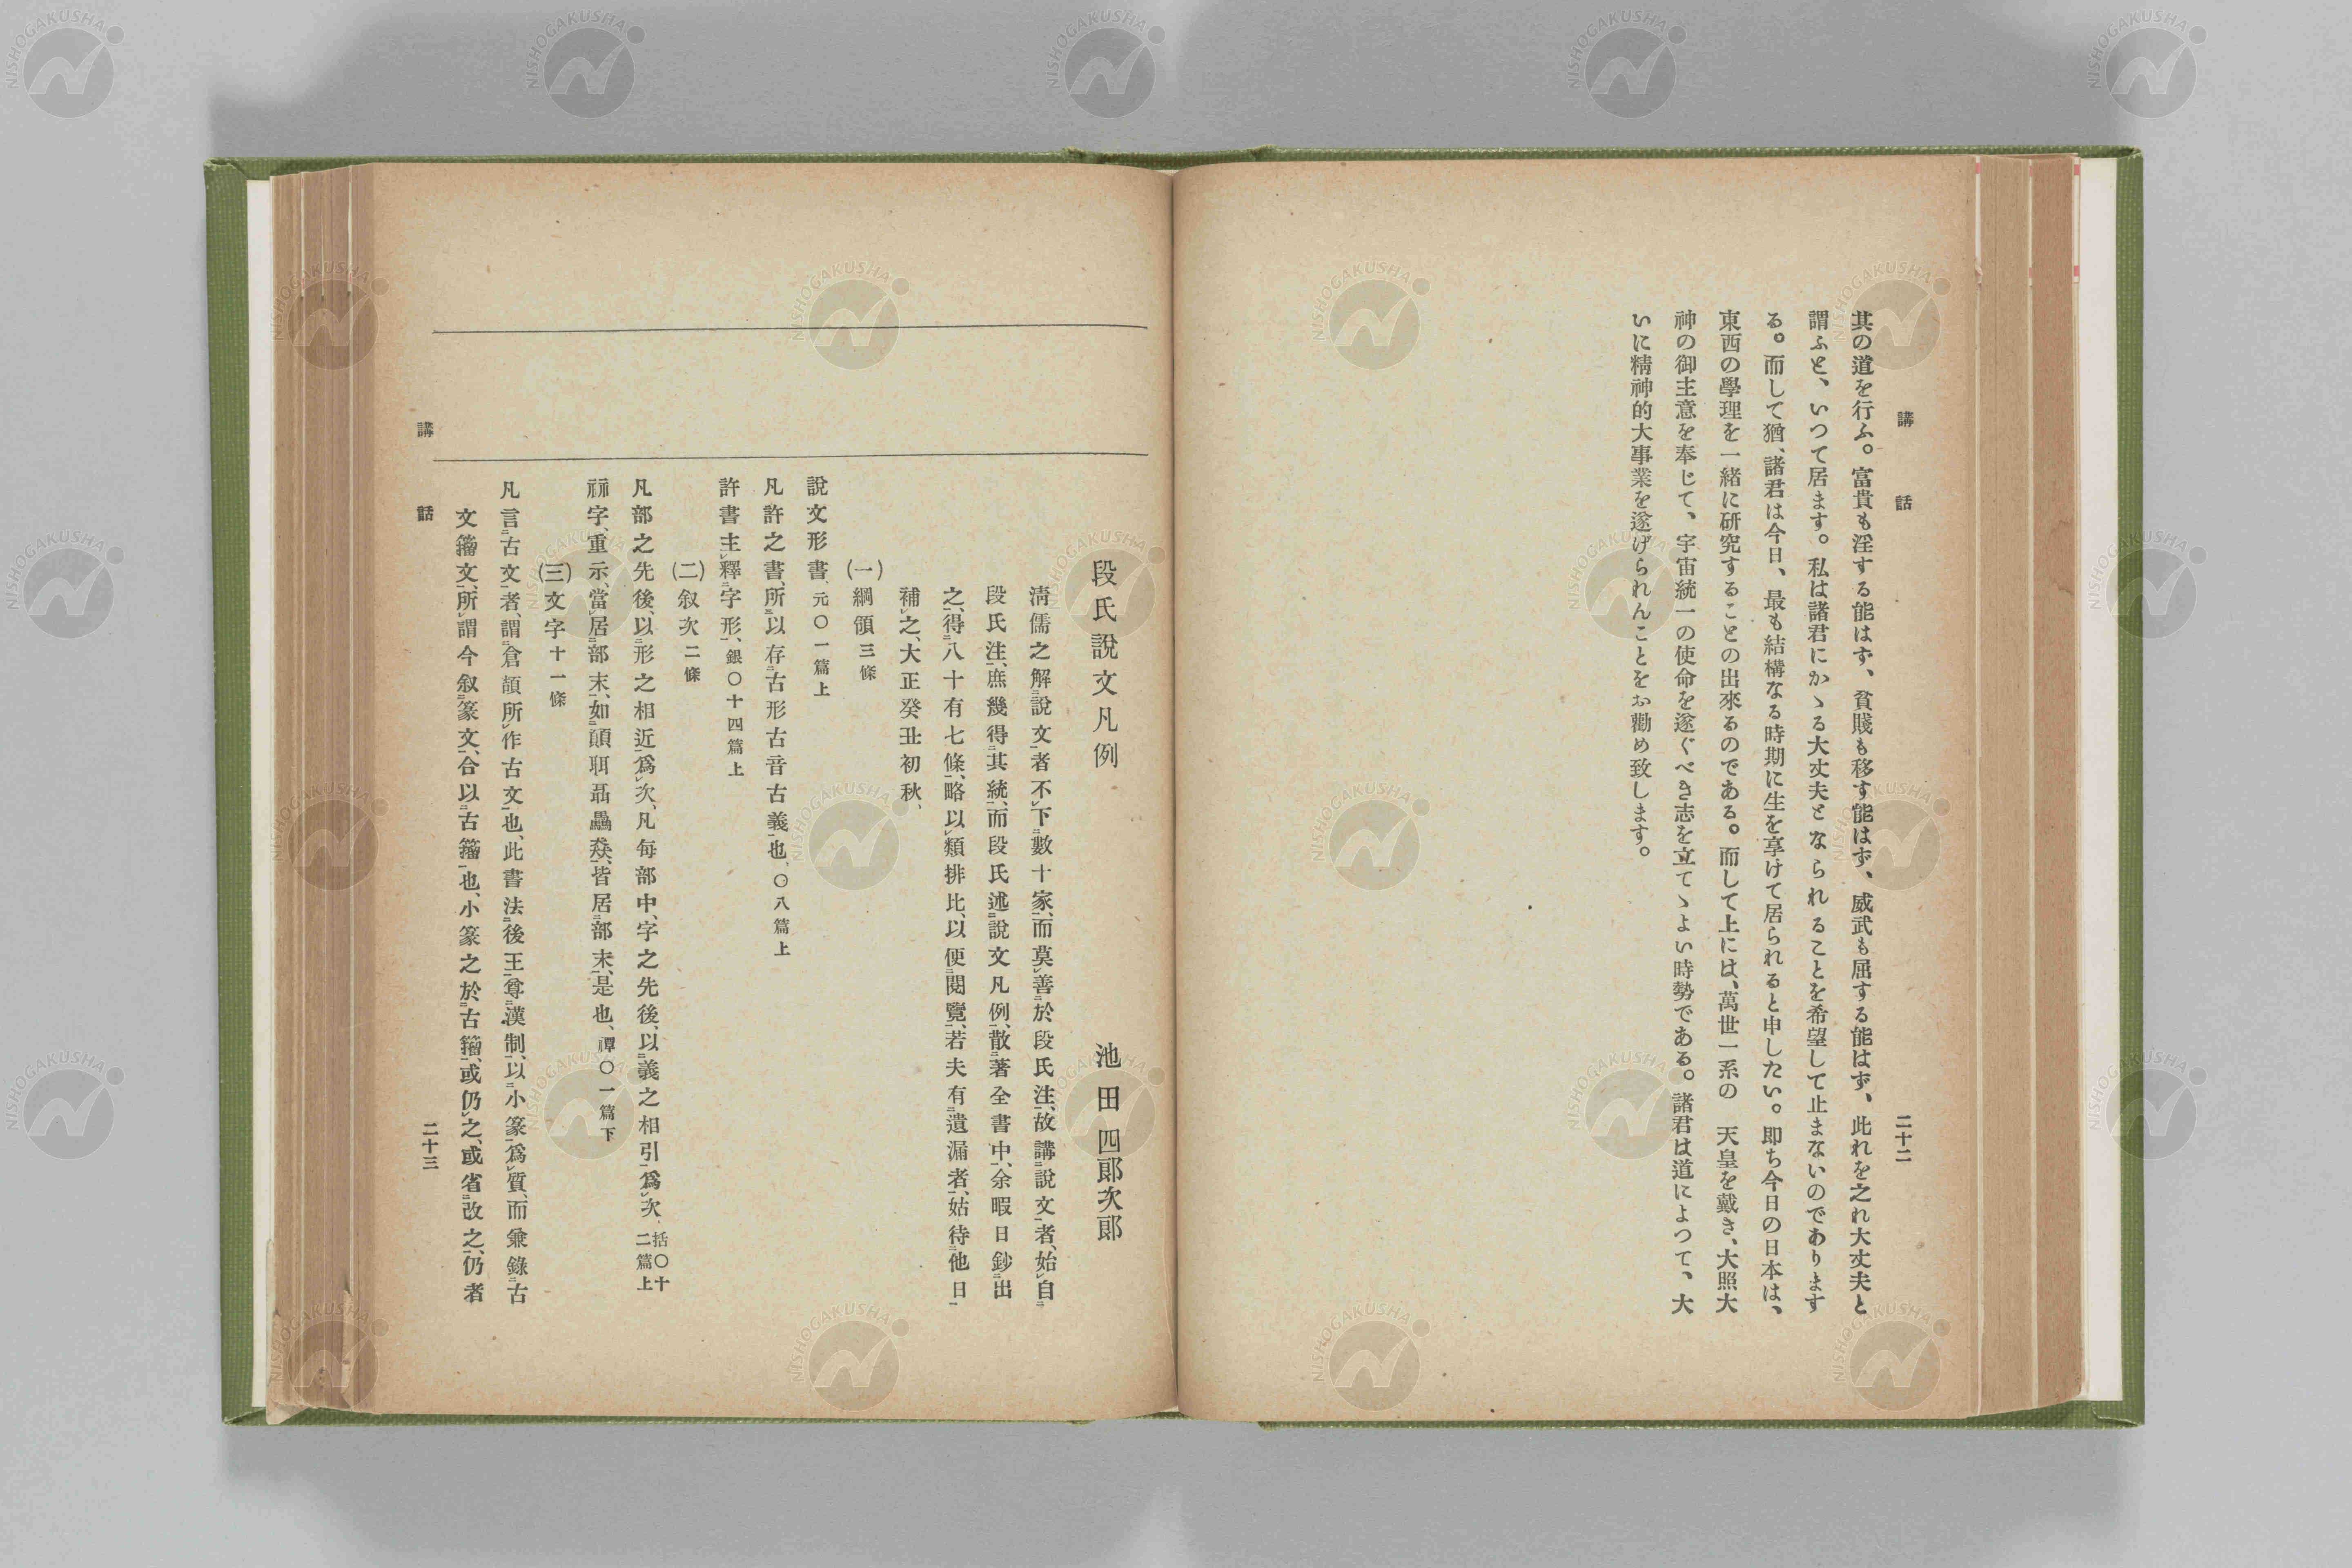 講話
二十二
其の道を行ふ。富貴も淫する能はず、貧賤も移す能はず、威武も屈する能はず、此れを之れ大丈夫と
謂ふと、いつて居ます。私は諸君にかゝる大丈夫となられることを希望して止まないのであります
る。而して猶、諸君は今日、最も結構なる時期に生を享けて居られると申したい。即ち今日の日本は、
東西の學理を一緒に研究することの出來るのである。而して上には、萬世一系の 天皇を戴き、大照大
神の御主意を奉じて、宇宙統一の使命を遂ぐべき志を立てゝよい時勢である。諸君は道によつて、大
いに精神的大事業を遂げられんことをお勸め致します。
段氏說文凡例
池田四郞次郞
淸儒之解㆓說文㆒者不㆑下㆓數十家㆒、而莫㆑善㆓於段氏注㆒、故講㆓說文㆒者、始㆑自㆓
段氏注㆒、庶幾得㆓其統㆒、而段氏述㆓說文凡例㆒、散㆓著全書中㆒、余暇日鈔㆓出
之㆒、得㆓八十有七條㆒、略以㆑類排比、以便㆓閱覽㆒、若夫有㆓遺漏者㆒、姑待㆓他日㆒
補㆑之、大正癸丑初秋、
(一)綱領三條
說文形書、元〇一篇上
凡許之書、所㆘以存㆓古形古音古義㆒也、〇八篇上
許書主㆑釋㆓字形㆒、銀〇十四篇上
(二)叙次二條
凡部之先後、以㆓形之相近㆒爲㆑次、凡每部中、字之先後、以㆓義之相引㆒爲㆑次、括〇十二篇上
祘字、重示、當㆑居㆓部末㆒、如㆓聑聶驫猋㆒、皆居㆓部末㆒、是也、禫〇一篇下
(三)文字十一條
凡言㆓古文㆒者、謂㆓倉頡所㆑作古文㆒也、此書法㆓後王㆒尊㆓漢制㆒、以㆓小篆㆒爲㆑質、而兼錄㆓古
文籒文㆒、所㆑謂今叙㆓篆文㆒、合以㆓古籒㆒也、小篆之於㆓古籒㆒、或仍㆑之、或省㆓改之㆒、仍者
講話
二十三
NISHOGAKUSHA